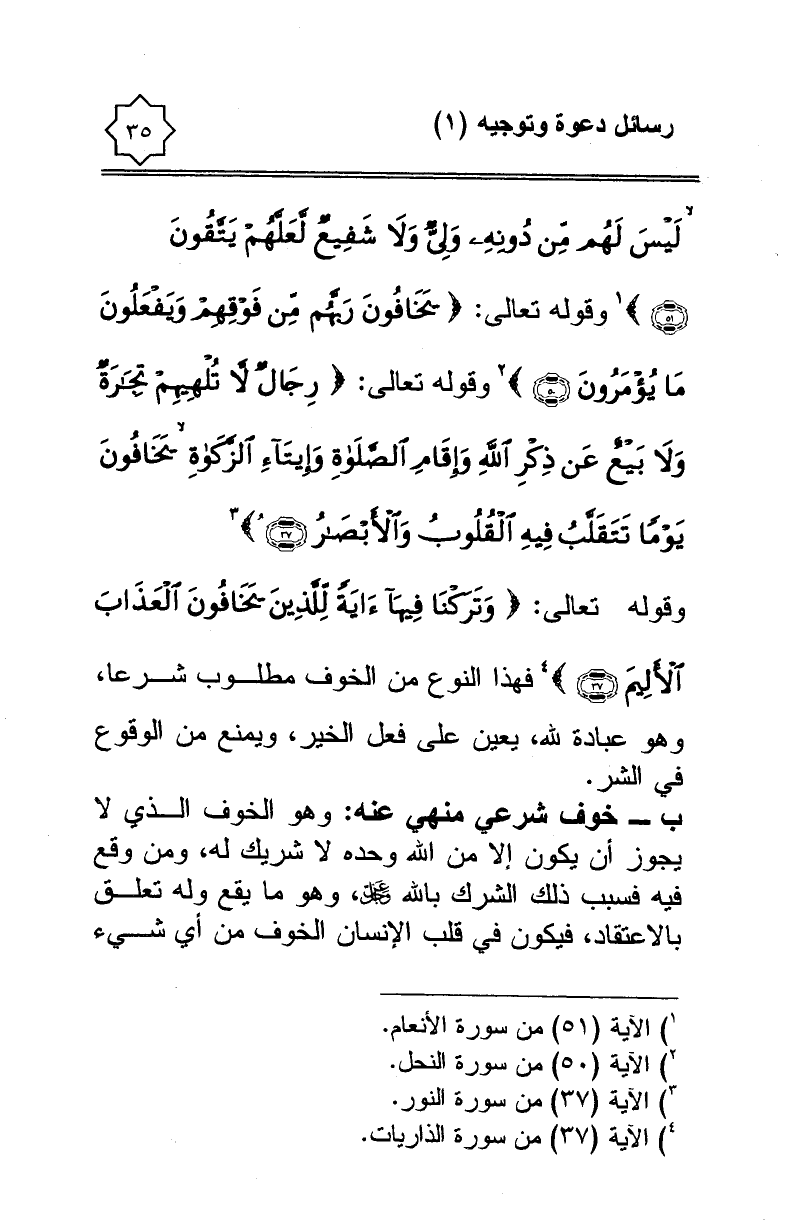 رسائل دعوة وتوجيه (١)
٣٥
لَيْسَ لَهُم مِّن دُونِهِۦ وَلِىٌّ وَلَا شَفِيعٌ لَّعَلَّهُمْ يَتَّقُونَ
۝٥١ ﴾١ وقوله تعالى: ﴿ يَخَافُونَ رَبَّهُم مِّن فَوْقِهِمْ وَيَفْعَلُونَ
مَا يُؤْمَرُونَ ۝٥٠ ﴾٢ وقوله تعالى: ﴿ رِجَالٌ لَّا تُلْهِيهِمْ تِجَٰرَةٌ
وَلَا بَيْعٌ عَن ذِكْرِ ٱللَّهِ وَإِقَامِ ٱلصَّلَوٰةِ وَإِيتَآءِ ٱلزَّكَوٰةِ ۙ يَخَافُونَ
يَوْمًا تَتَقَلَّبُ فِيهِ ٱلْقُلُوبُ وَٱلْأَبْصَٰرُ ۝٣٧ ﴾٣
وقوله تعالى: ﴿ وَتَرَكْنَا فِيهَآ ءَايَةً لِّلَّذِينَ يَخَافُونَ ٱلْعَذَابَ
ٱلْأَلِيمَ ۝٣٧ ﴾٤ فهذا النوع من الخوف مطلوب شرعا،
وهو عبادة لله، يعين على فعل الخير، ويمنع من الوقوع
في الشر.
ب ـ خوف شرعي منهي عنه: وهو الخوف الذي لا
يجوز أن يكون إلا من الله وحده لا شريك له، ومن وقع
فيه فسبب ذلك الشرك بالله ، وهو ما يقع وله تعلق
بالاعتقاد، فيكون في قلب الإنسان الخوف من أي شيء
١) الآية (٥١) من سورة الأنعام.
٢) الآية (٥٠) من سورة النحل.
٣) الآية (٣٧) من سورة النور.
٤) الآية (٣٧) من سورة الذاريات.